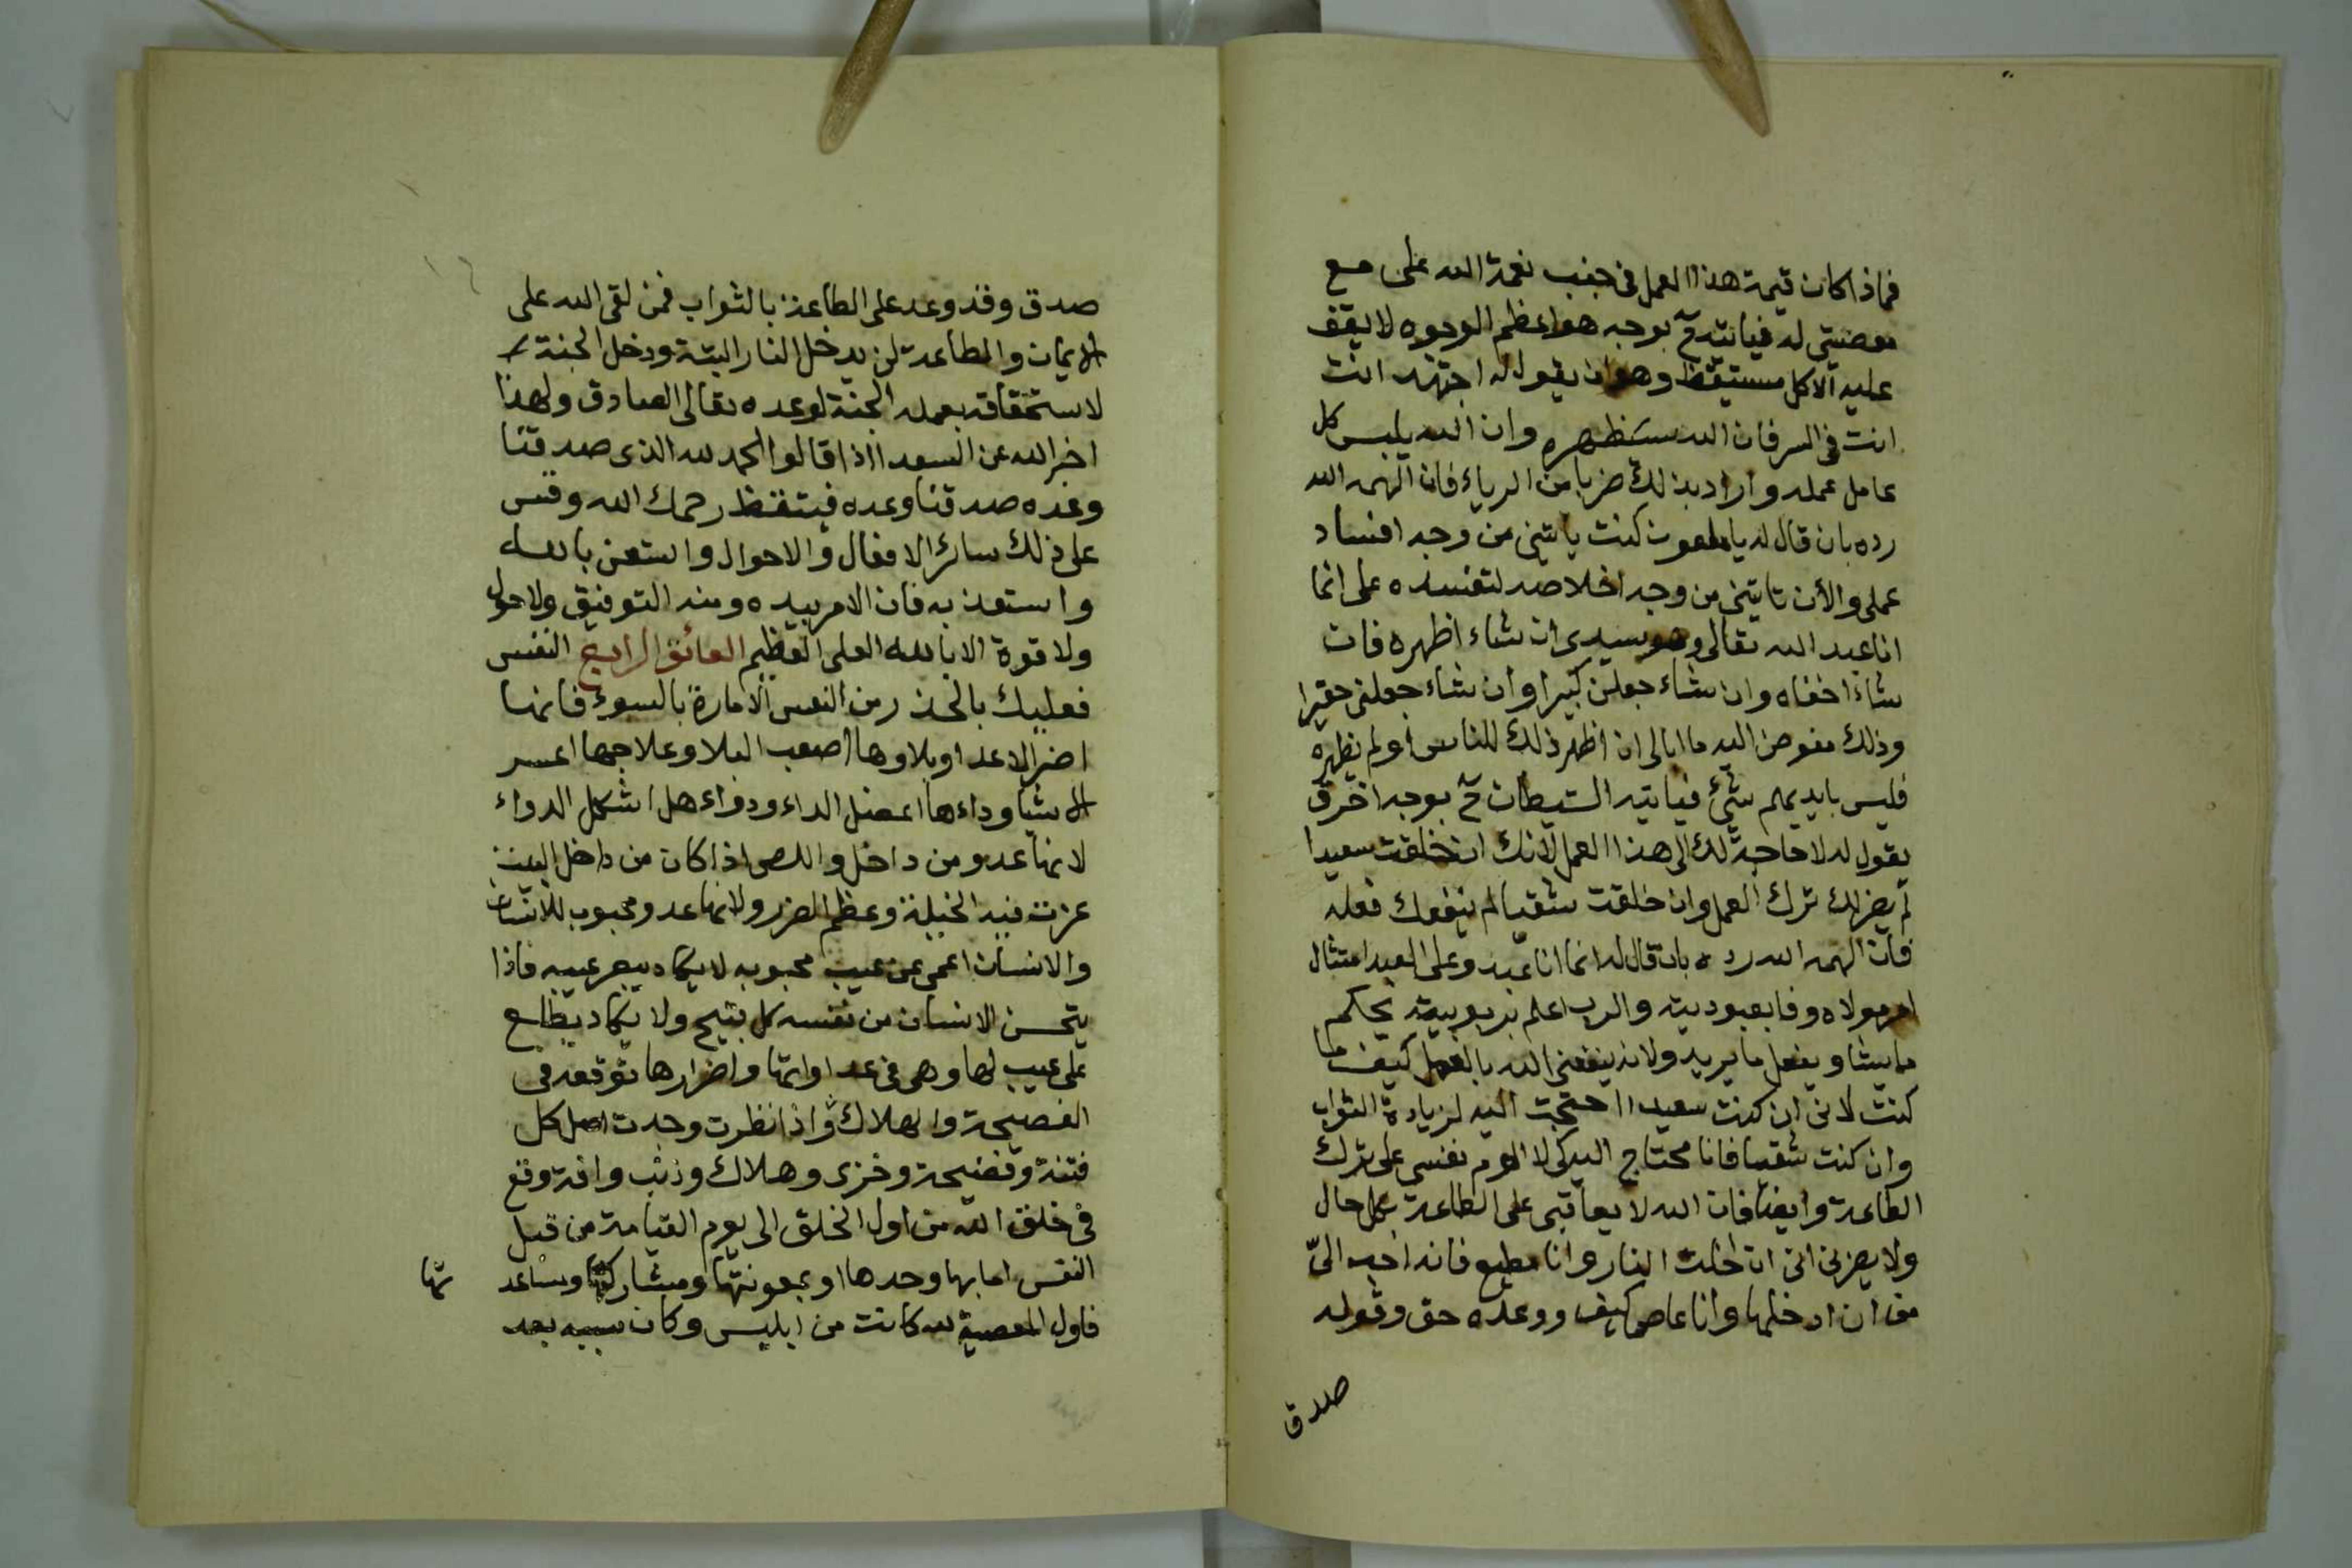 فماذا كان قيمة هذا العمل في جنب نعمة الله على مع
معصيتي له فيأتيه ح بوجه هو اعظم الوجوه لا يقف
عليه الا كل مستيقظ وهو ان يقول له اجتهد انت
انت في السر فان الله سيظهره وان الله يلبس كل
عامل عمله واراد بذلك ضربا من الرياء فان الهمه الله
رده بان قال له يا ملعون كنت ياتيني من وجه افساد
عملي والأن تاتيني من وجه اخلاصه لتفسده على انما
انا عبد الله تعالى وهو سيدي ان شاء اظهره فان
شاء اخفاه وان شاء جعلني كبيرا وان شاء جعلني حقيرا
وذلك مفوض اليه ما ابالي ان اظهر ذلك للناس او لم يظهره
فليس بايديهم شئ فيأتيه الشيطان ح بوجه اخر ق
يقول له لا حاجة لك الى هذا العمل لانك ان خلقت سعيدا
لم يضرك ترك العمل وان خلقت شقيا لم ينفعك فعله
فان الهمه الله رده بان قال له انما انا عبد وعلى العبد امتثال
امر مولاه وفا بعبوديته والرب اعلم بربوبيته يحكم
ما يشا ويفعل ما يريد ولانه ينفعني الله بالعمل كيف ما
كنت لاني ان كنت سعيدا احتجت اليه لزيادة الثواب
وان كنت شقيا فانا محتاج اليه كي لا الوم نفسي على ترك
الطاعة وايضا فان الله لا يعاقبني على الطاعة بكل حال
ولا يضرني اني ان دخلت النار وانا مطيع فانه احب الىّ
من ان ادخلها وانا عاص كيف ووعده حق وقوله
صدق
صدق وقد وعد على الطاعة بالثواب فمن لقى الله على
الايمان والطاعة لن يدخل النار البتة ودخل الجنة
لاستحقاقه بعمله الجنة لوعده تعالى الصادق ولهذا
اخبر الله عن السعدا اذا قالوا الحمد لله الذي صدقنا
وعده صدقنا وعده فيتقظ رحمك الله وقس
على ذلك سائر الافعال والاحوال واستعن بالله
واستعذ به فان الامر بيده ومنه التوفيق ولا حول
ولا قوة الا بالله العلى العظيم العائق الرابع النفس
فعليك بالحذر من النفس الامارة بالسوء فانها
اضر الاعدا وبلاوها اصعب البلا وعلاجها اعسر
الاشيا وداءها اعضل الداء ودواءها اشكل الدواء
لانها عدو من داخل واللص اذا كان من داخل البيت
عزت فيه الحيلة وعظم الضرر ولانها عدو محبوب للانسان
والانسان اعمى عن عيب محبوبه لا يكاد يبصر عيبه فاذا
يتحسن الانسان من نفسه كل قبيح ولا يكاد يطلع
على عيب لها وهى في عداواتها واضرارها توقعه في
الفضيحة والهلاك واذا نظرت وجدت اصل كل
فتنة وفضيحة وخزى وهلاك وذنب وافة وقع
في خلق الله من اول الخلق الى يوم القيامة من قبل
النفس اما بها وحدها او بمعونتها ومشاركتها ومساعد
تها
فاول المعصية لله كانت من ابليس وكان سببه بعد